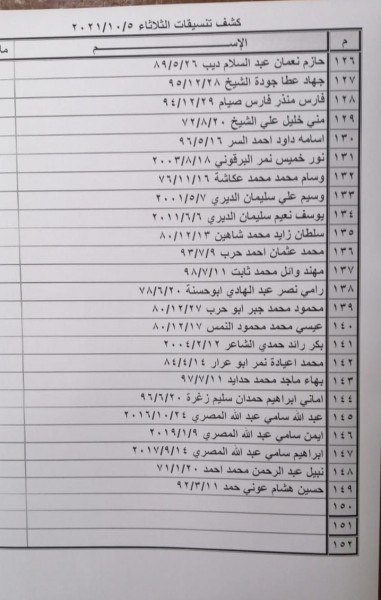 كشف تنسيقات الثلاثاء ٢٠٢١/١٠/٥
م الإســـــــم
١٢٦ حازم نعمان عبد السلام ديب ٨٩/٥/٢٦
١٢٧ جهاد عطا جودة الشيخ ٩٥/١٢/٢٨
١٢٨ فارس منذر فارس صيام ٩٤/١٢/٢٩
١٢٩ مني خليل علي الشيخ ٧٢/٨/٢٠
١٣٠ اسامه داود احمد السر ٩٦/٥/١٦
١٣١ نور خميس نمر اليرقوني ٢٠٠٣/٨/١٨
١٣٢ وسام محمد محمد عكاشة ٧٦/١١/١٦
١٣٣ وسيم علي سليمان الديري ٢٠٠١/٥/٧
١٣٤ يوسف نعيم سليمان الديري ٢٠١١/٦/٦
١٣٥ سلطان زايد محمد شاهين ٨٠/١٢/١٣
١٣٦ محمد عثمان احمد حرب ٩٣/٧/٩
١٣٧ مهند وائل محمد ثابت ٩٨/٧/١١
١٣٨ رامي نصر عبد الهادي ابوحسنة ٧٨/٦/٢٠
١٣٩ محمود محمد جبر ابو حرب ٨٠/١٢/٢٧
١٤٠ عيسي محمد محمود النمس ٨٠/١٢/١٧
١٤١ بكر رائد حمدي الشاعر ٢٠٠٤/٢/١٢
١٤٢ محمد اعيادة نمر ابو عرار ٨٤/٤/١٤
١٤٣ بهاء ماجد محمد حدايد ٩٧/٧/١١
١٤٤ اماني ابراهيم حمدان سليم زغرة ٩٦/٦/٢٠
١٤٥ عبد الله سامي عبد الله المصري ٢٠١٦/١٠/٢٤
١٤٦ ايمن سامي عبد الله المصري ٢٠١٩/١/٩
١٤٧ ابراهيم سامي عبد الله المصري ٢٠١٧/٩/١٤
١٤٨ نبيل عبد الرحمن محمد احمد ٧١/١/٢٠
١٤٩ حسين هشام عوني حمد ٩٢/٣/١١
١٥٠
١٥١
١٥٢